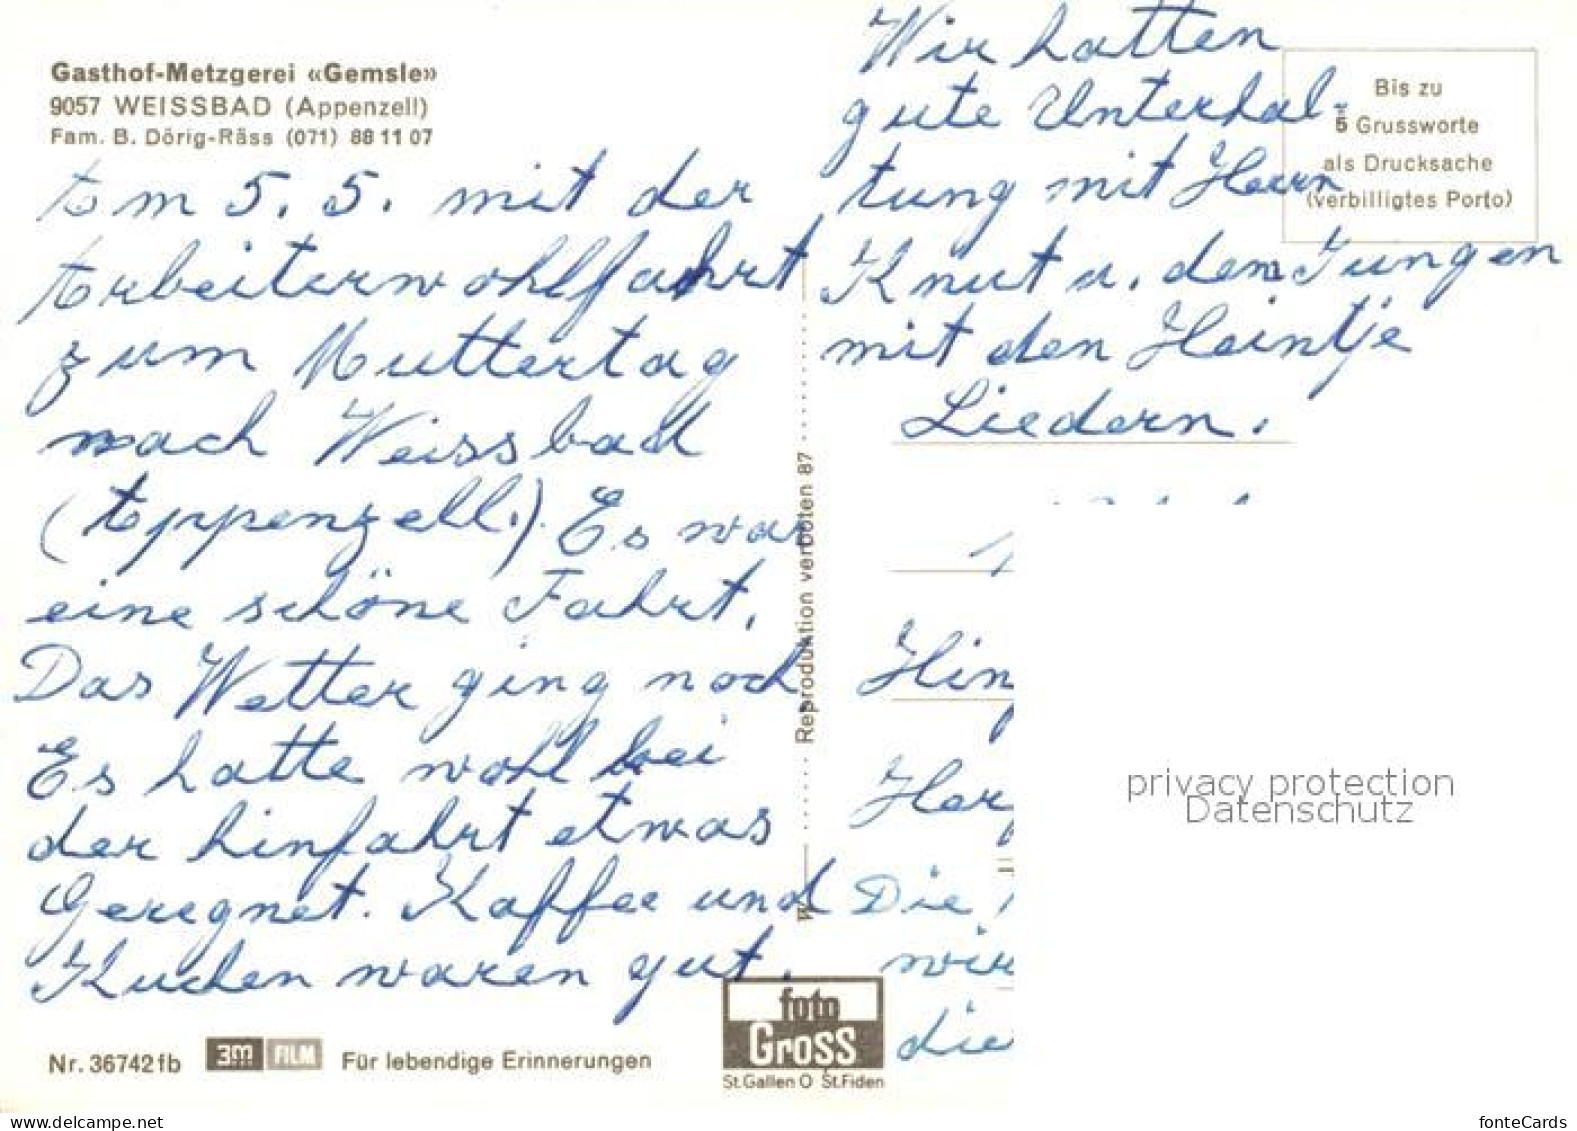 Gasthof-Metzgerei «Gemsle»
9057 WEISSBAD (Appenzell)
Fam. B. Dörig-Räss (071) 88 11 07
Am 5. 5. mit der
Arbeiterwohlfahrt
zum Muttertag
nach Weissbad
(Appenzell.). Es war
eine schöne Fahrt.
Das Wetter ging noch.
Es hatte wohl bei
der hinfahrt etwas
Geregnet. Kaffee und
Kuchen waren gut.
Wir hatten
gute Unterhal-
tung mit Herrn
Knut u. dem Jungen
mit den Heintje
Liedern.
Bis zu
5 Grussworte
als Drucksache
(verbilligtes Porto)
Reproduktion verboten 87
Hin
Her
Die
wir
die
privacy protection
Datenschutz
Nr. 36742fb
3M FILM
Für lebendige Erinnerungen
foto
Gross
St.Gallen O St.Fiden
www.delcampe.net
fonteCards